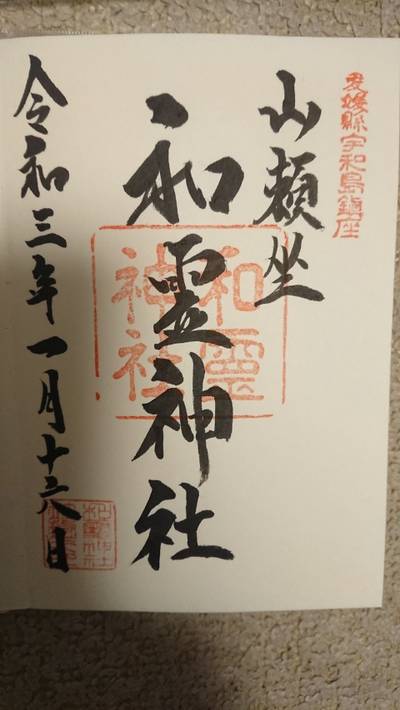 愛媛縣宇和島鎮座
山頼坐
和霊神社
和霊神社
令和三年一月十六日